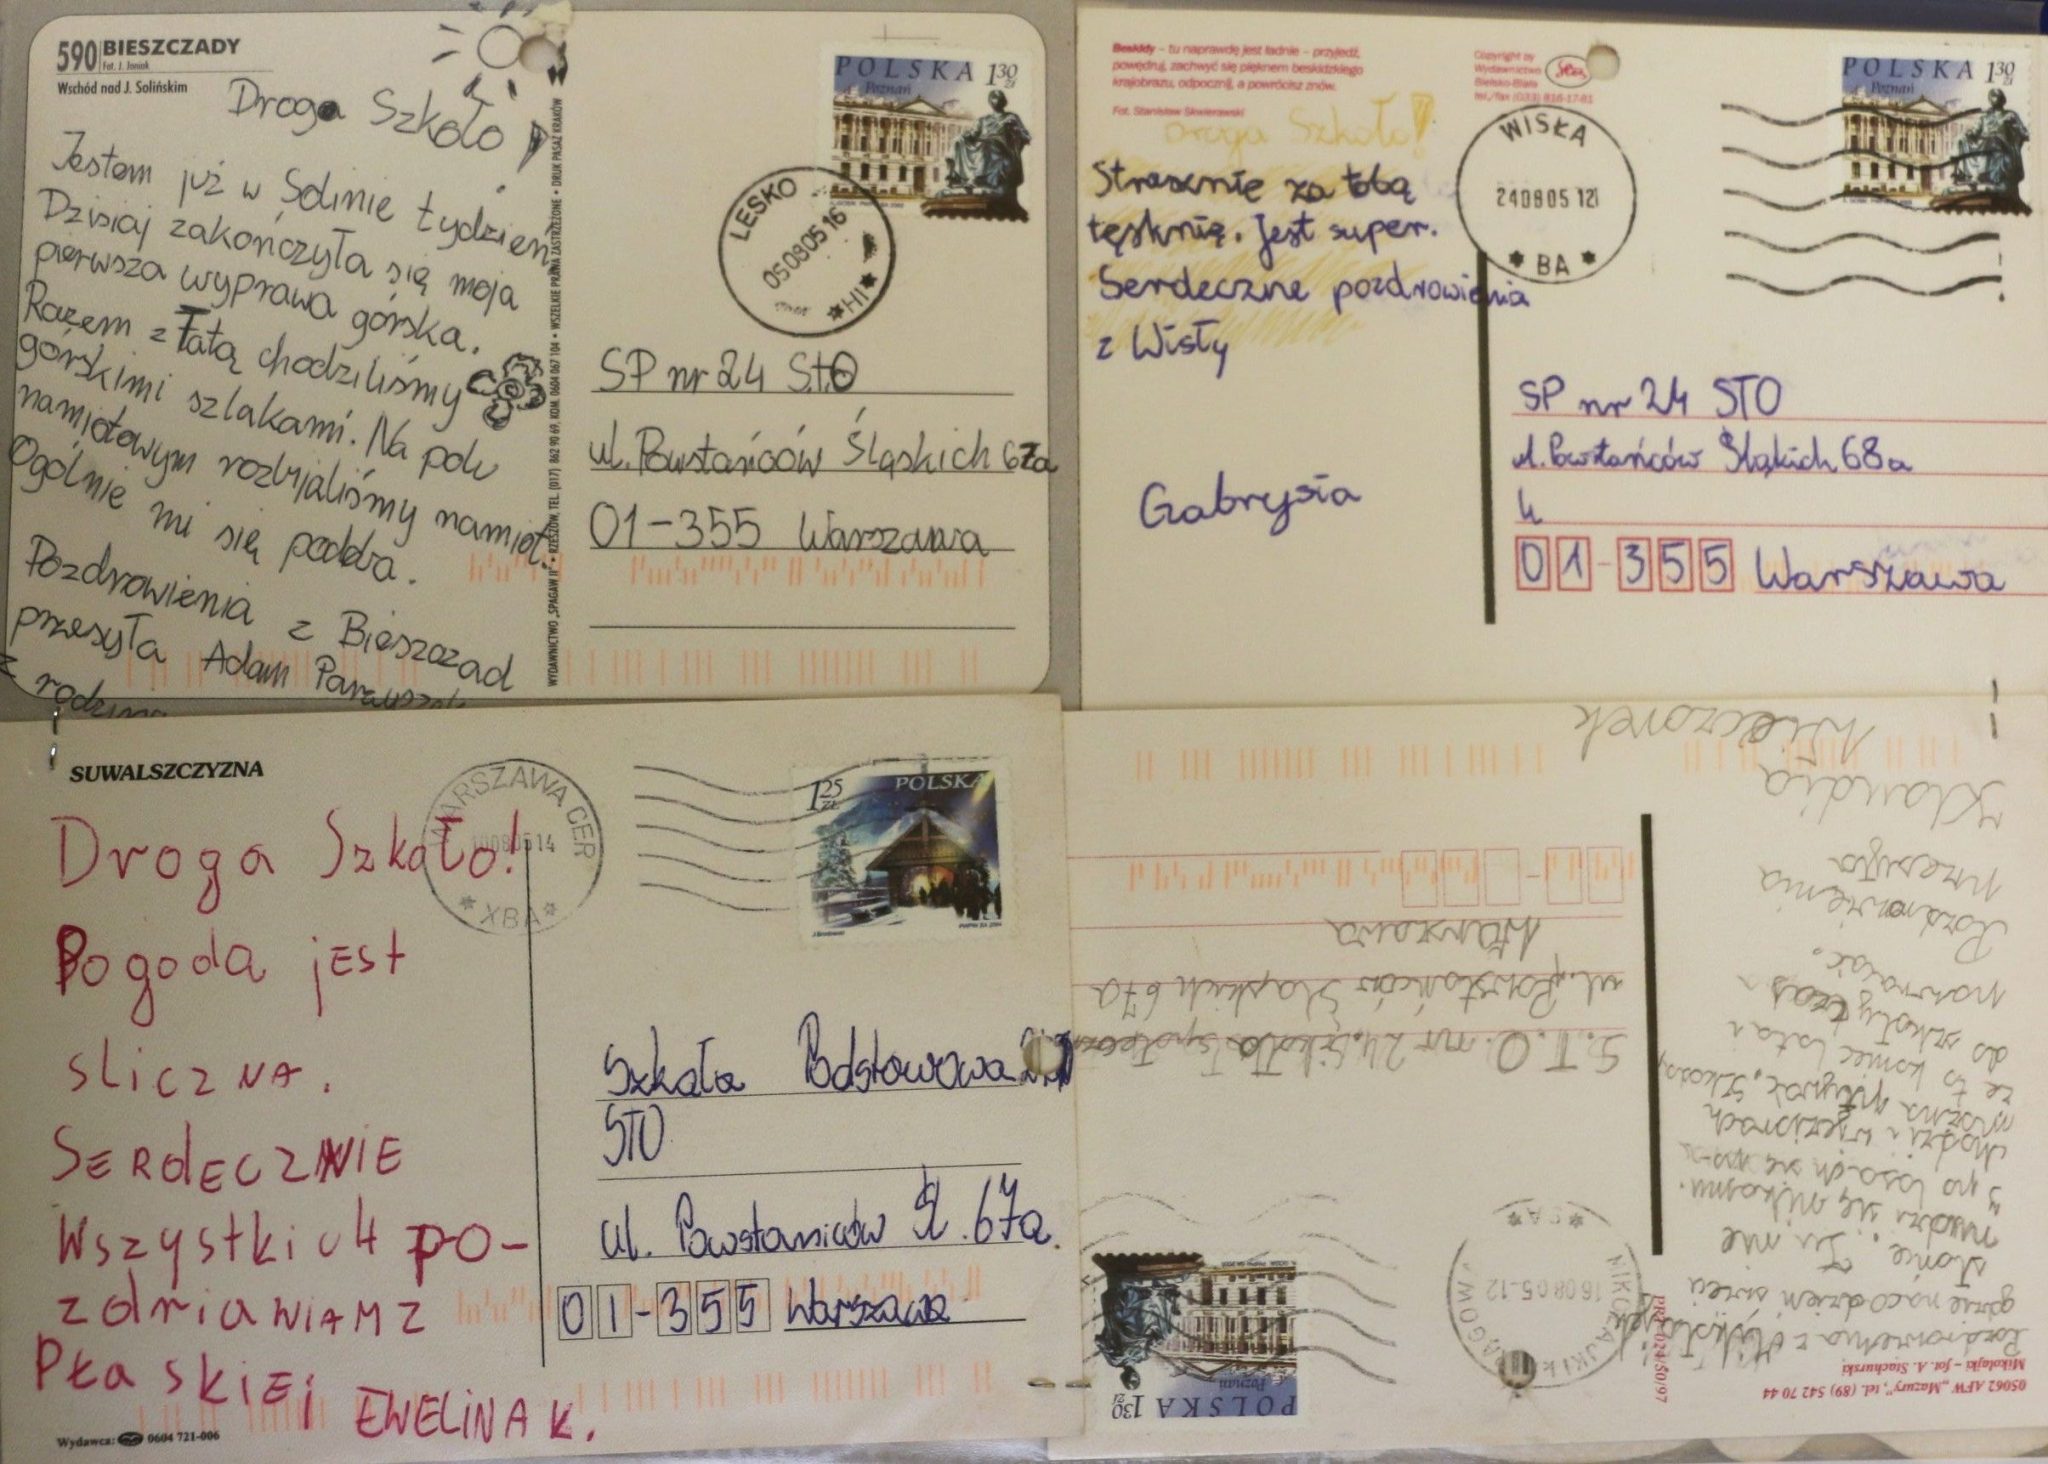 590 BIESZCZADY
Fot. J. Joniak
Wschód nad J. Solińskim
Droga Szkoło!
Jestem już w Solinie tydzień.
Dzisiaj zakończyła się moja
pierwsza wyprawa górska.
Razem z Tatą chodziliśmy
górskimi szlakami. Na polu
namiotowym rozbijaliśmy namiot.
Ogólnie mi się podoba.
Pozdrowienia z Bieszczad
przesyła Adam
z rodziną
WYDAWNICTWO „SPAGAW II" • RZESZÓW, TEL. (017) 862 90 69, KOM. 0604 067 104 • WSZELKIE PRAWA ZASTRZEŻONE • DRUK PASAŻ KRAKÓW
POLSKA 1 30 zł
Poznań
LESKO
05 08 05 16
* HI *
SP nr 24 STO
ul. Powstańców Śląskich 67a
01-355 Warszawa
Beskidy – tu naprawdę jest ładnie – przyjedź,
powędruj, zachwyć się pięknem beskidzkiego
krajobrazu, odpocznij, a powrócisz znów.
Fot. Stanisław Skwierawski
Copyright by
Wydawnictwo
Bielsko-Biała
tel./fax (033) 816-17-81
Droga Szkoło!
Strasznie za tobą
tęsknię. Jest super.
Serdeczne pozdrowienia
z Wisły
Gabrysia
WISŁA
240805 12
* BA *
POLSKA 1 30 zł
Poznań
SP nr 24 STO
ul. Powstańców Śląkich 68a
4
01-355 Warszawa
SUWALSZCZYZNA
Droga Szkoło!
Pogoda jEst
sliczNA.
SERdECZNIE
Wszystkich po-
zdriawiAM z
Płaskiej EWELINA K.
Wydawca: 0604 721-006
WARSZAWA CER
0805 14
* XBA *
1 25 ZŁ POLSKA
Szkoła Podstowowa
STO
ul. Powstaniców Śl. 67a.
01-355 Warszawa
05062 AFW „Mazury", tel. (89) 542 70 44
Mikołajki – fot. A. Stachurski
Pozdrowienia z
górze na codzień świeci
słońce. Tu nie
nudzi się nikomu.
po lasach się
chodzi i w jeziorach
można pływać. Szkoda,
że to koniec lata i
do szkoły czas
powracać.
Pozdrowienia
przesyła
Klaudia
Wieczorek
16 08 05-12
POLSKA 1 30 zł
Poznań
S.T.O. nr 24. Szkoła
ul. Powstańców Śląskich 67a
Warszawa